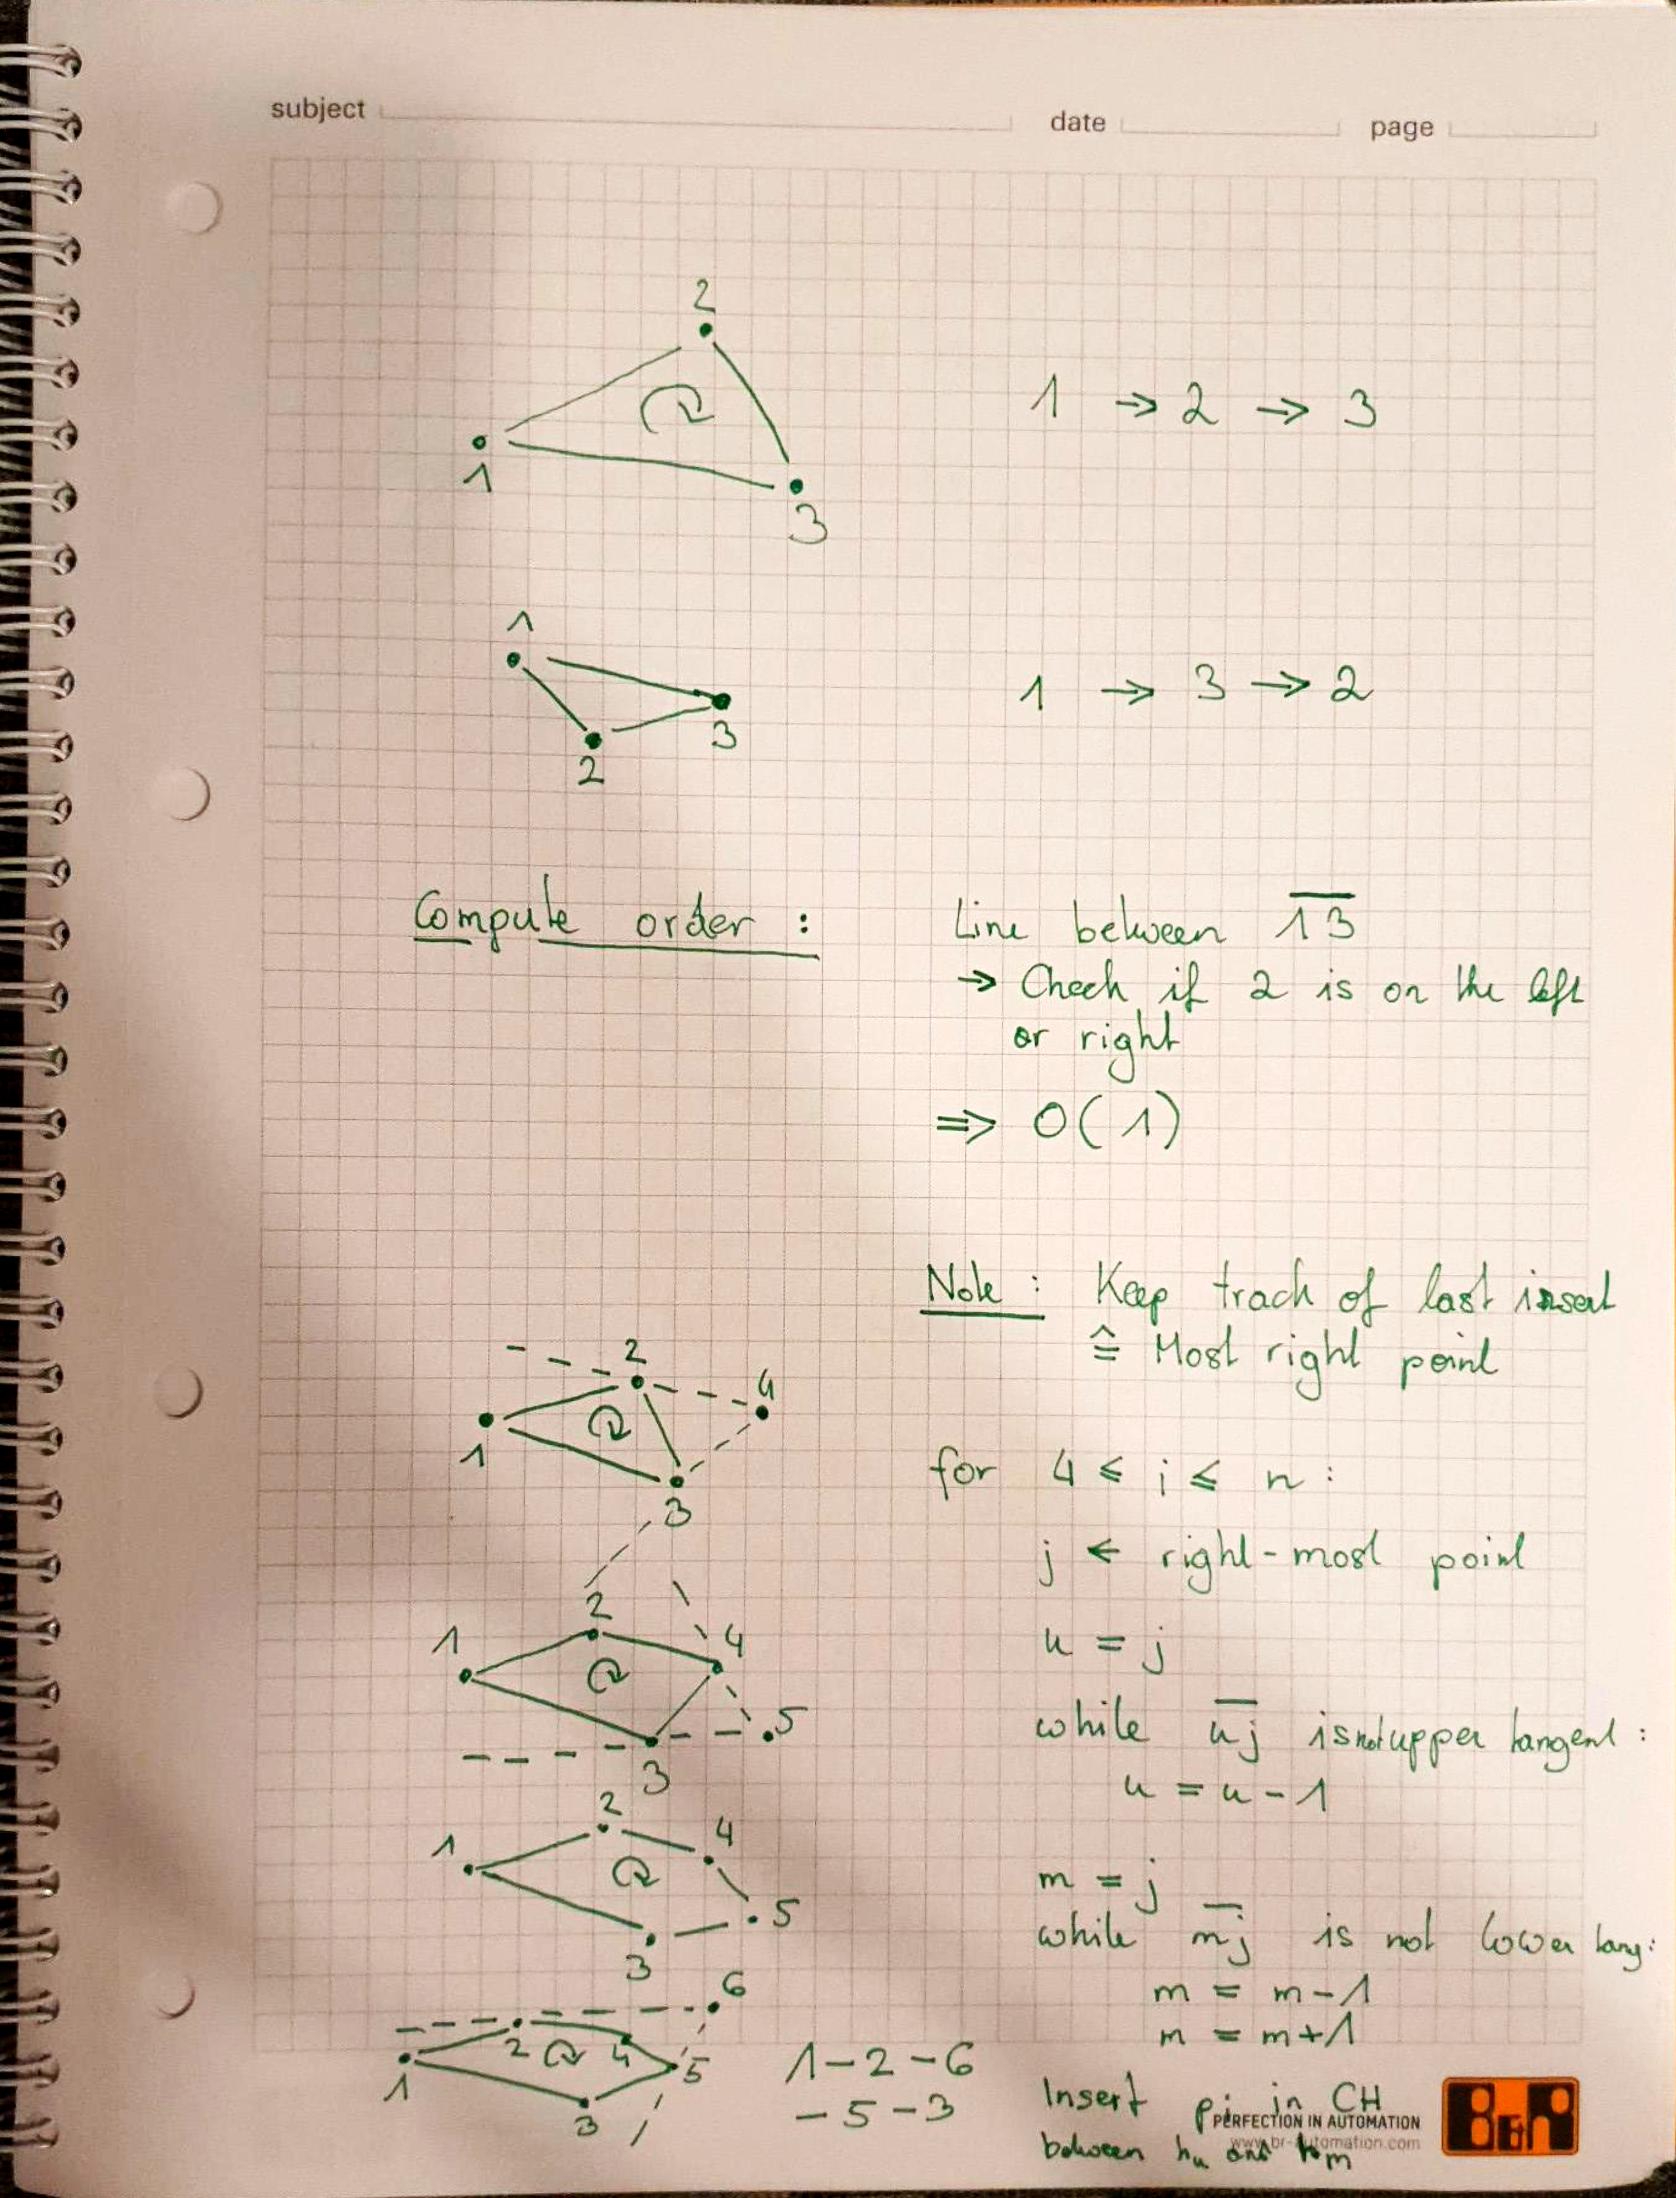 subject date page
2
1
3
1 → 2 → 3
1
2
3
1 → 3 → 2
Compute order :
Line between 13
→ Check if 2 is on the left
or right
⇒ O(1)
Note : Keep track of last insert
≙ Most right point
2
4
1
3
for 4 ≤ i ≤ n :
j ← right-most point
2
1
4
5
3
u = j
while uj is not upper tangent :
u = u - 1
2
1
4
5
3
m = j
while mj is not lower tang:
m = m-1
m = m+1
6
2
4
5
1
3
1-2-6
-5-3
Insert pi in CH
between hu and hm
PERFECTION IN AUTOMATION
www.br-automation.com
B&R